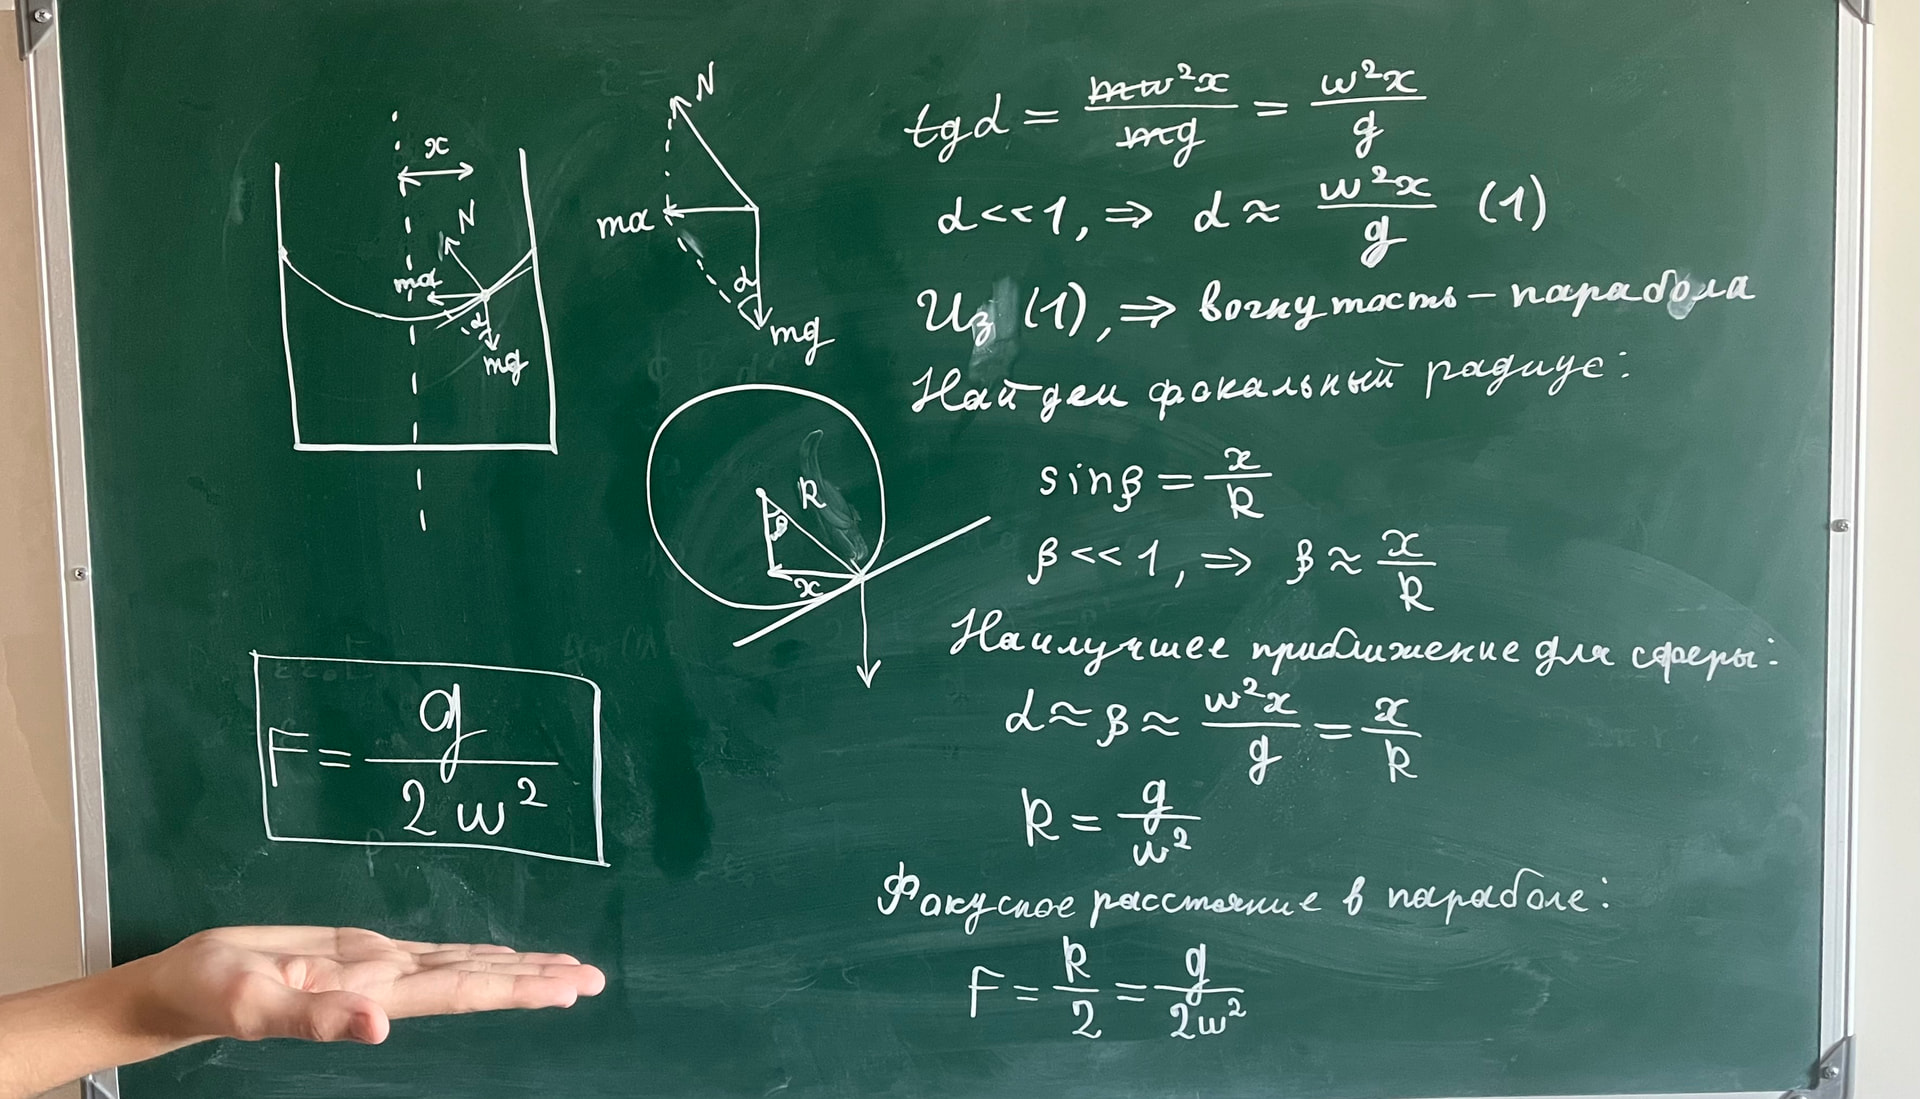 x
N
ma
α
mg
N
ma
α
mg
R
β
x
F = g / 2w²
tgα = mw²x / mg = w²x / g
α<<1, ⇒ α ≈ w²x / g (1)
Из (1), ⇒ вогнутость - парабола
Найдем фокальный радиус:
sinβ = x / R
β<<1, ⇒ β ≈ x / R
Наилучшее приближение для сферы:
α ≈ β ≈ w²x / g = x / R
R = g / w²
Факусное расстояние в параболе:
F = R / 2 = g / 2w²